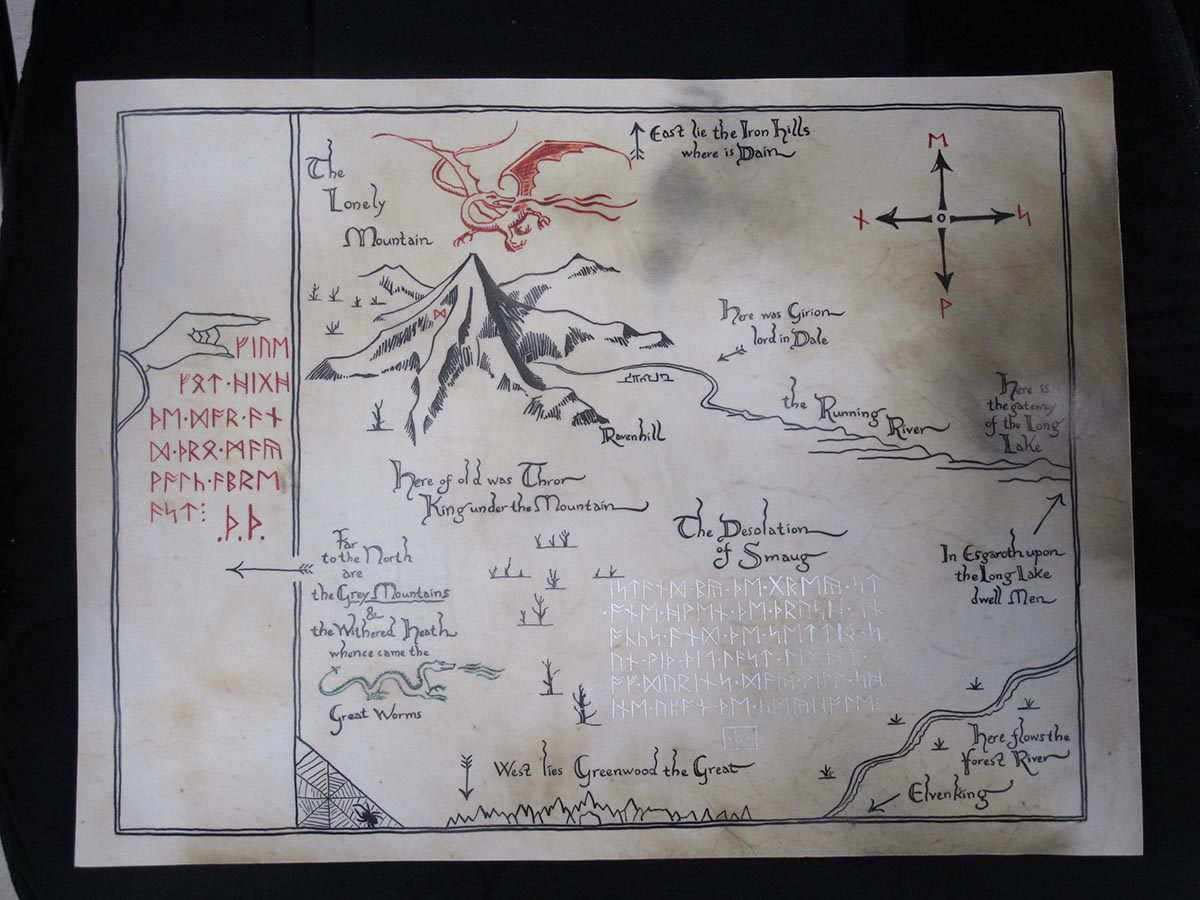 The
Lonely
Mountain
East lie the Iron Hills
where is Dain
ᛖ
ᚾ ᛋ
ᚹ
ᛞ
Here was Girion
lord in Dale
the Running
River
Here is
the gateway
of the Long
Lake
Ravenhill
ᚠᛁᚢᛖ
ᚠᚩᛏ᛫ᚻᛁᚷᚻ
ᚦᛖ᛫ᛞᚩᚱ᛫ᚪᚾ
ᛞ᛫ᚦᚱᛟ᛫ᛗᚪᚣ
ᚹᚪᛚᚳ᛫ᚪᛒᚱᛖ
ᚪᛋᛏ᛬
.ᚦ.ᚦ.
Here of old was Thror
King under the Mountain
The Desolation
of Smaug
Far
to the North
are
the Grey Mountains
&
the Withered Heath
whence came the
Great Worms
In Esgaroth upon
the Long Lake
dwell Men
West lies Greenwood the Great
Here flows the
forest River
Elvenking